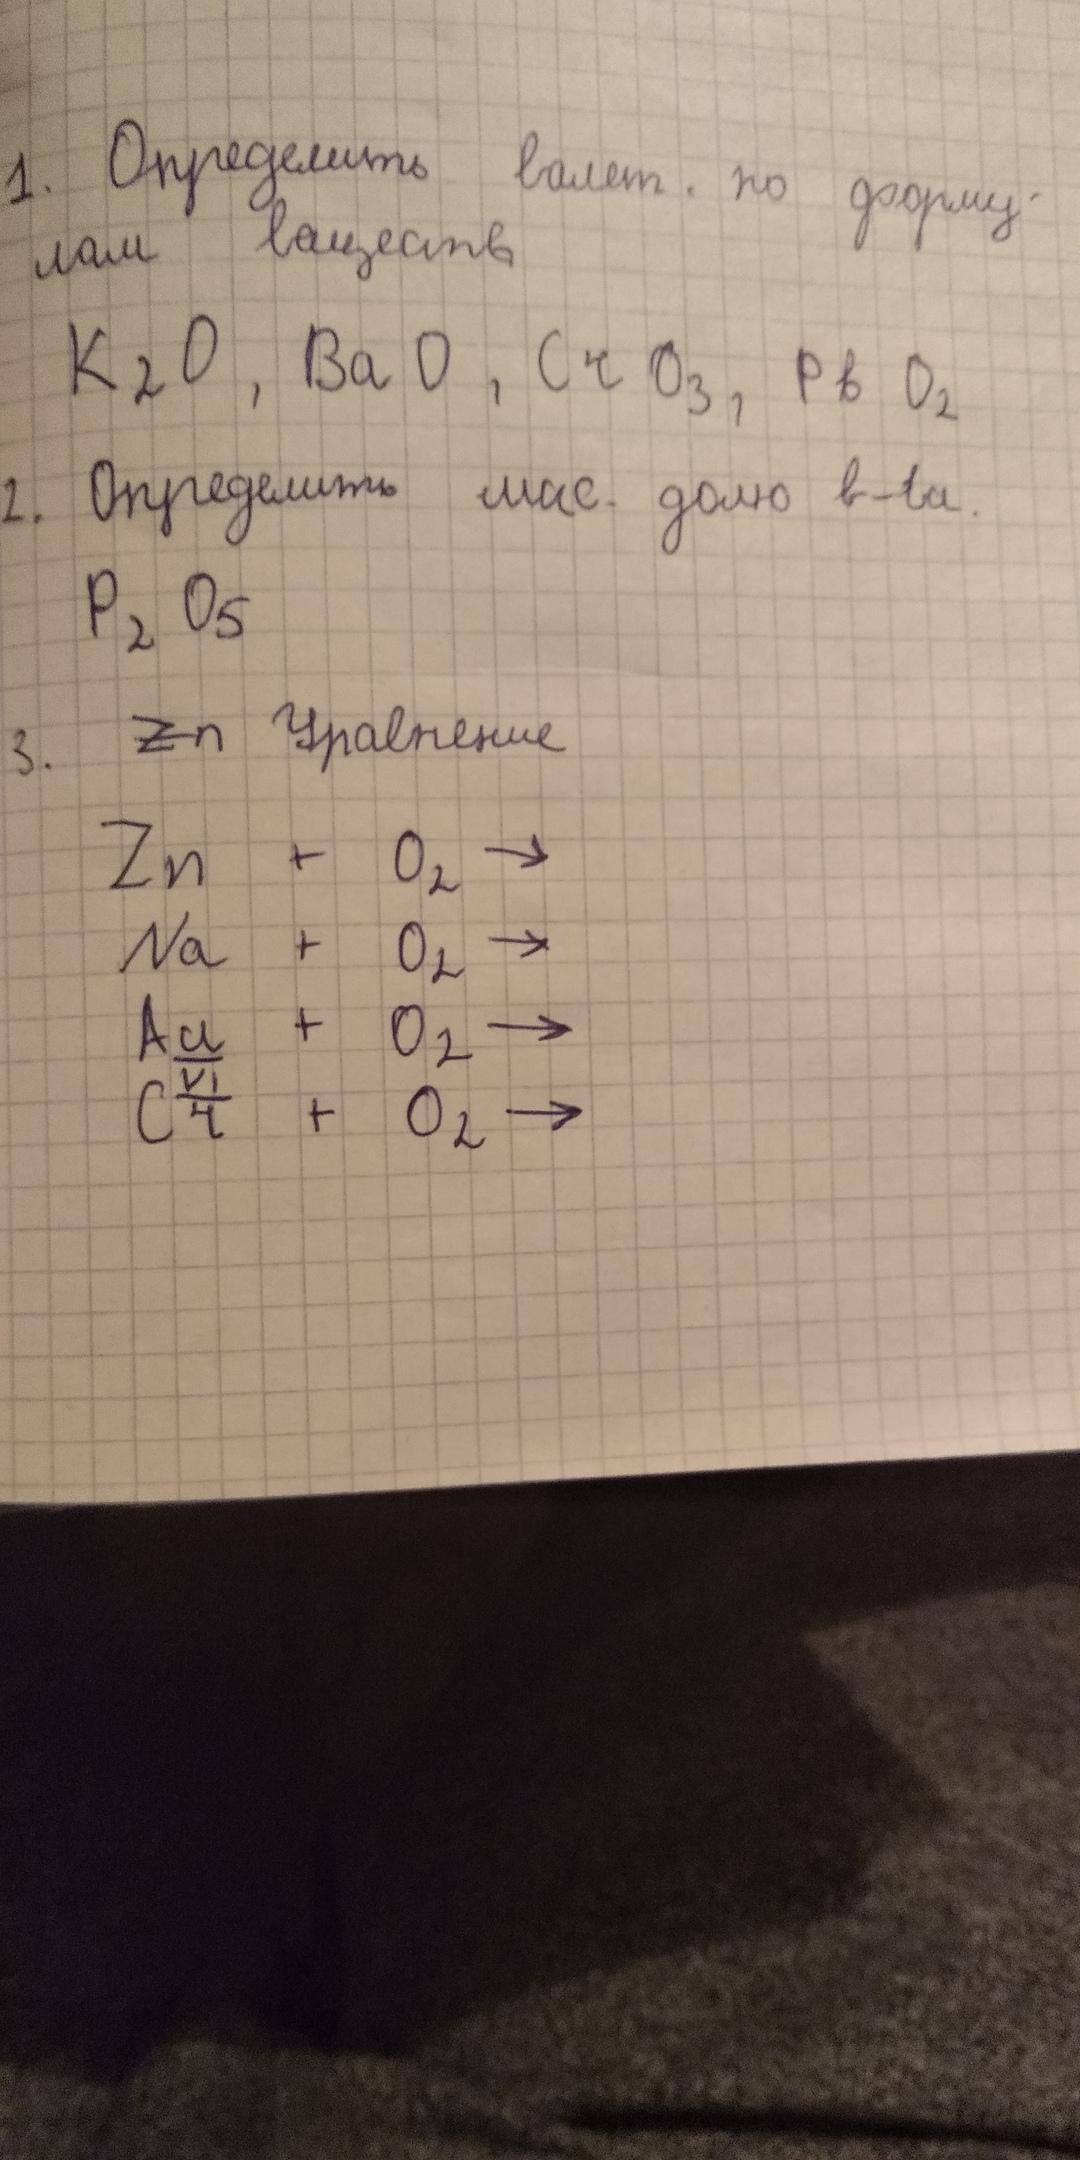 1. Определить валет. по форму-
лам ваществ
K₂O, BaO, CrO₃, PbO₂
2. Определить мас. долю в-ва.
P₂O₅
3. Zn Уравнение
Zn + O₂ →
Na + O₂ →
Au + O₂ →
VI
Cr + O₂ →